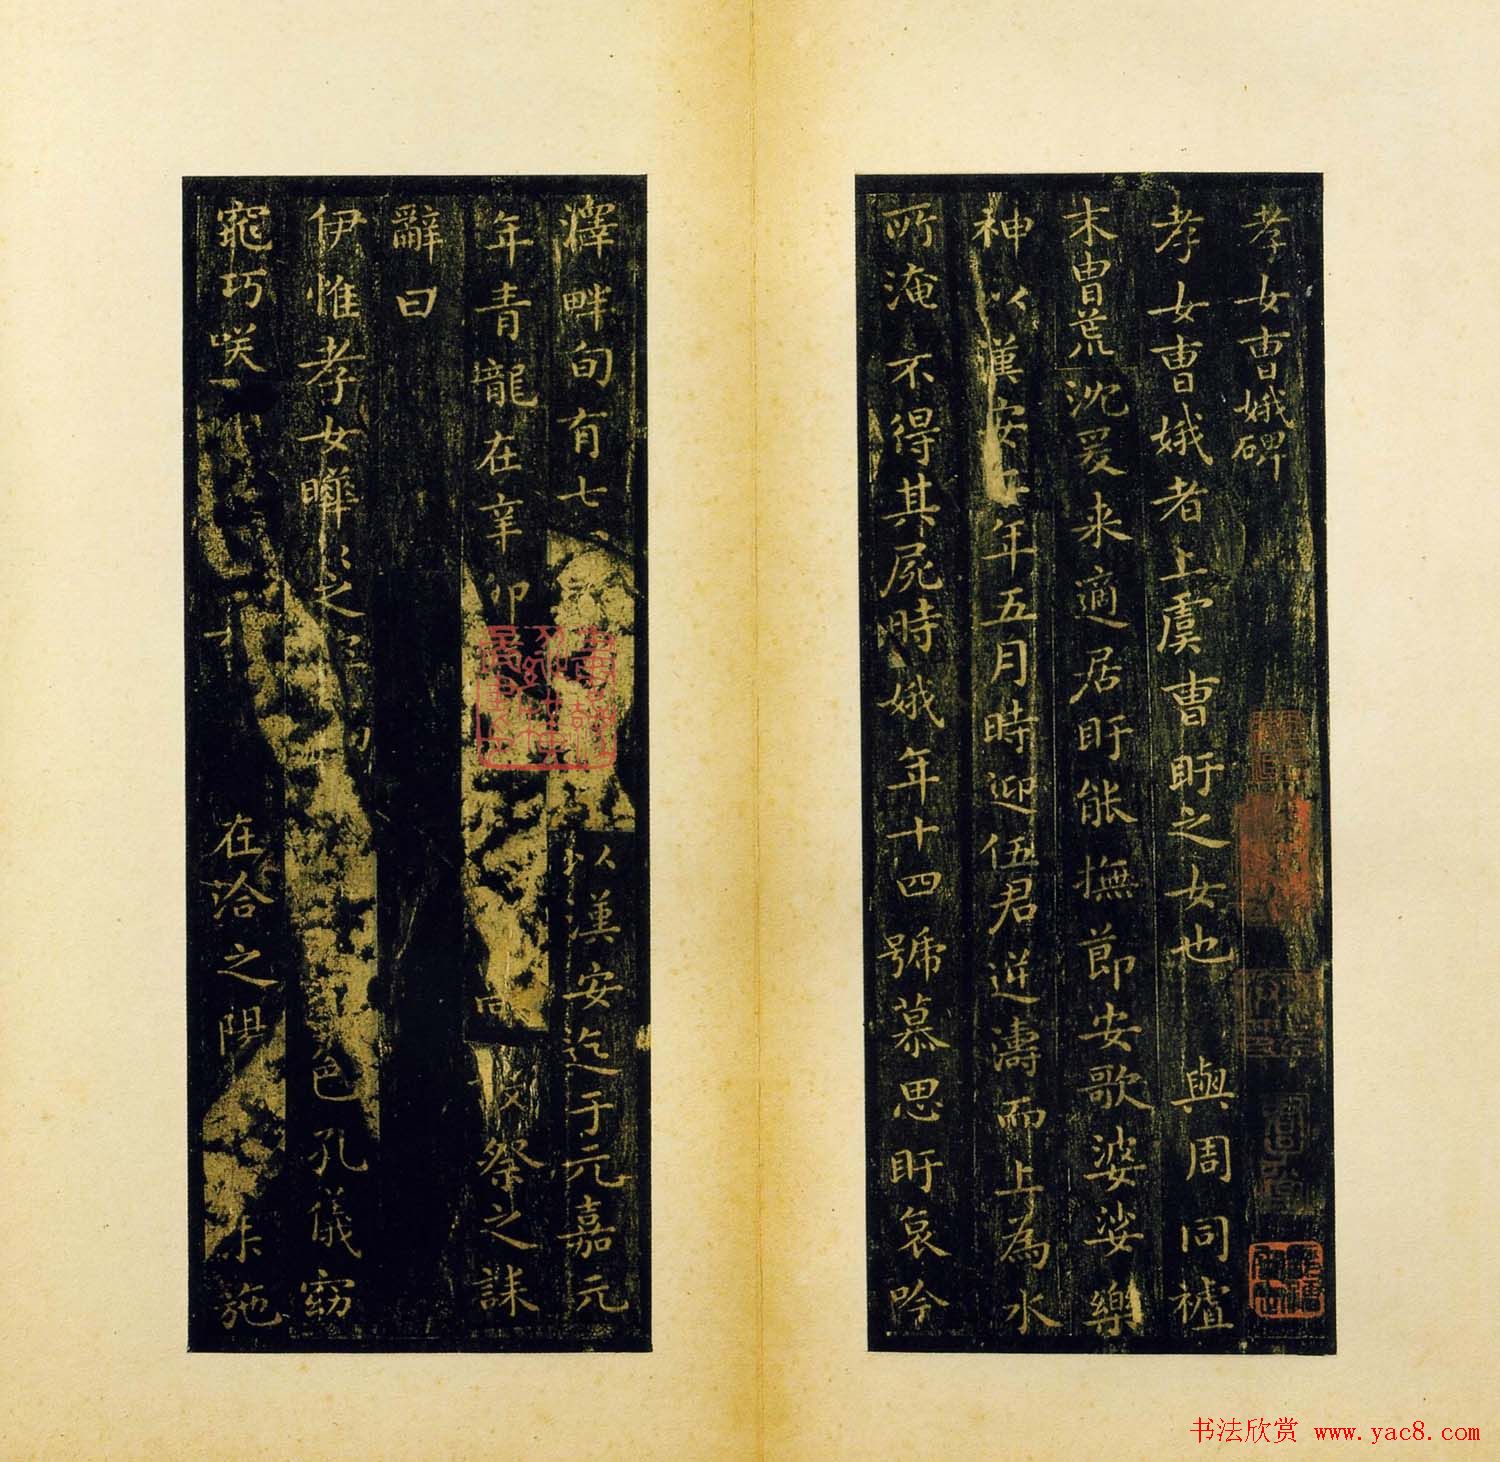 孝女曹娥碑
孝女曹娥者上虞曹盱之女也 與周同禃
末胄荒沈爰来適居盱能撫節安歌婆娑樂
神以漢安二年五月時迎伍君逆濤而上為水
所淹不得其屍時娥年十四號慕思盱哀吟
澤畔旬有七 以漢安迄于元嘉元
年青龍在辛卯 祭之誄
辭曰
伊惟孝女曄 之 色孔儀窈
窕巧咲 在洽之陽 施
书法欣赏 www.yac8.com